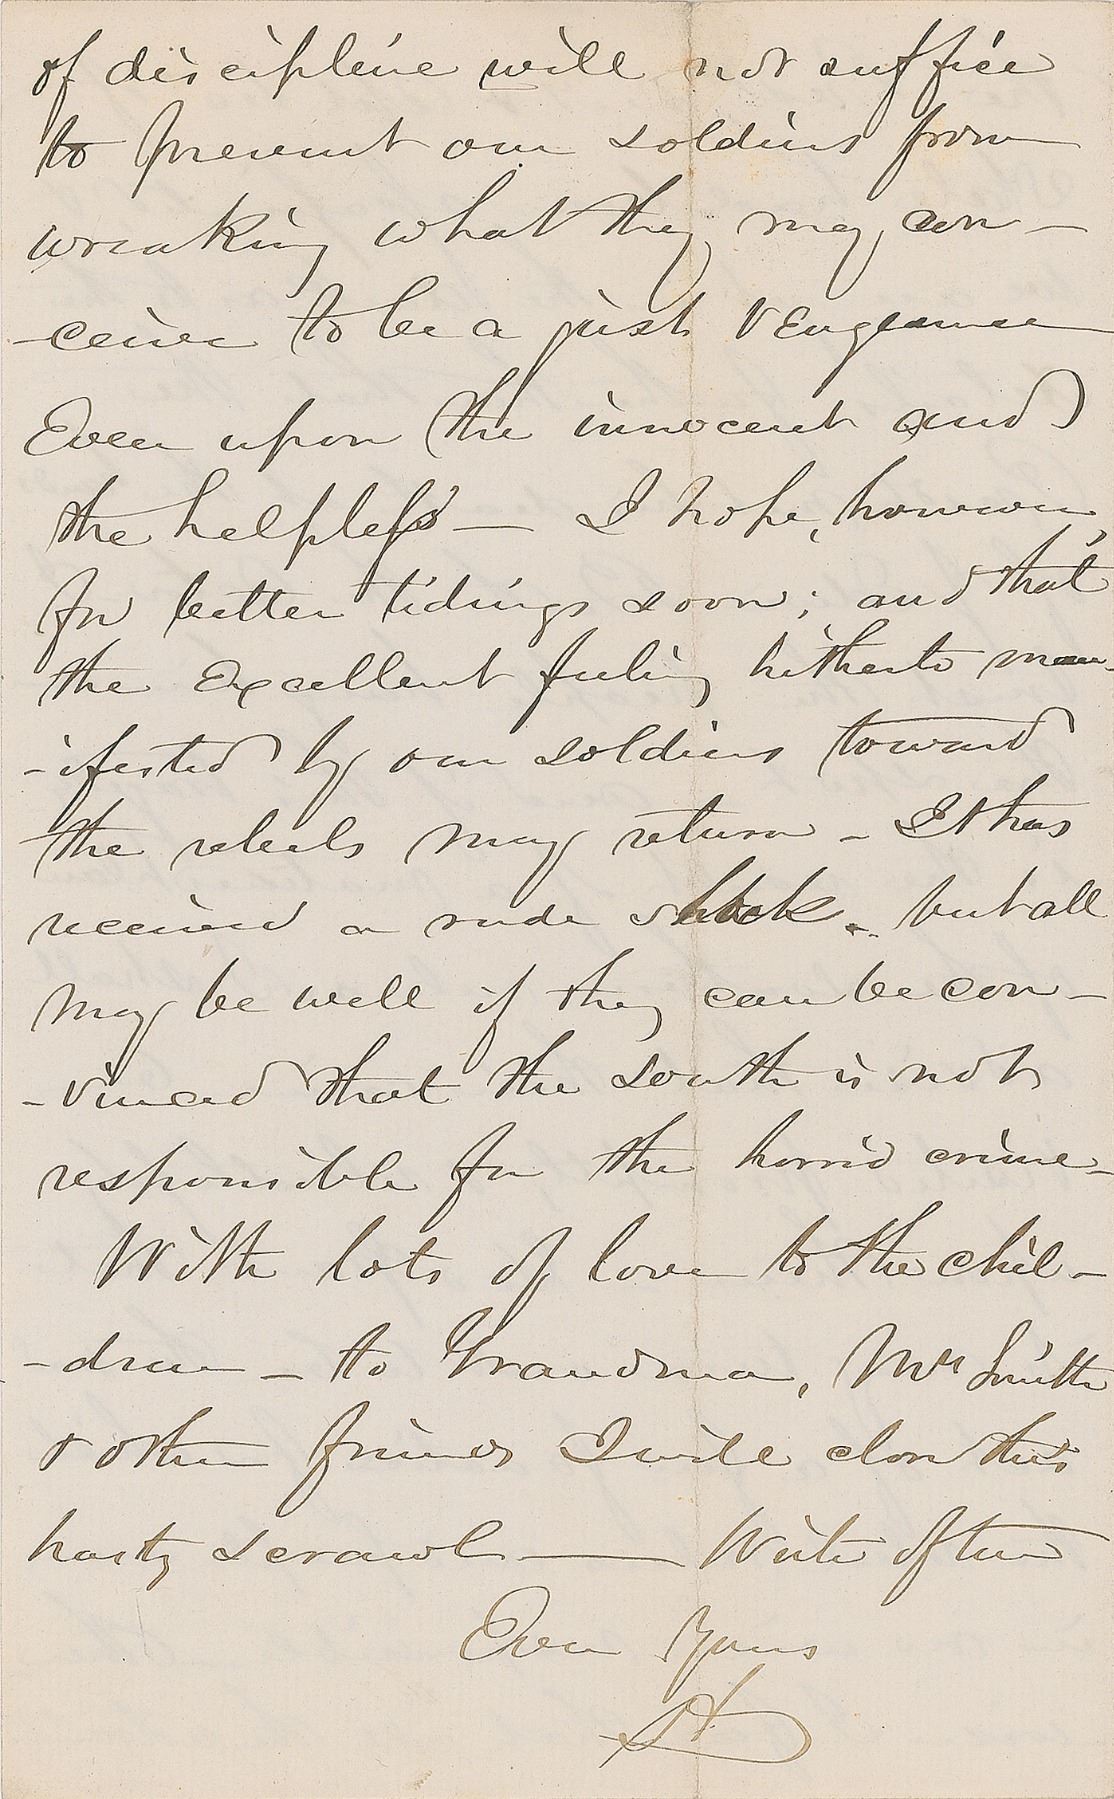 of discipline will not suffice
to prevent our soldiers from
wreaking what they may con-
-ceive to be a just vengeance
Even upon the innocent and
the helpless — I hope, however,
for better tidings soon; and that
the excellent feeling hitherto man-
-ifested by our soldiers toward
the rebels may return - It has
received a rude shock - but all
may be well if they can be con-
-vinced that the south is not
responsible for the horrid crime -
With lots of love to the chil-
-dren - to Grandma, Mrs Smith
& other friends I will close this
hasty scrawl — Write often
Ever Yours